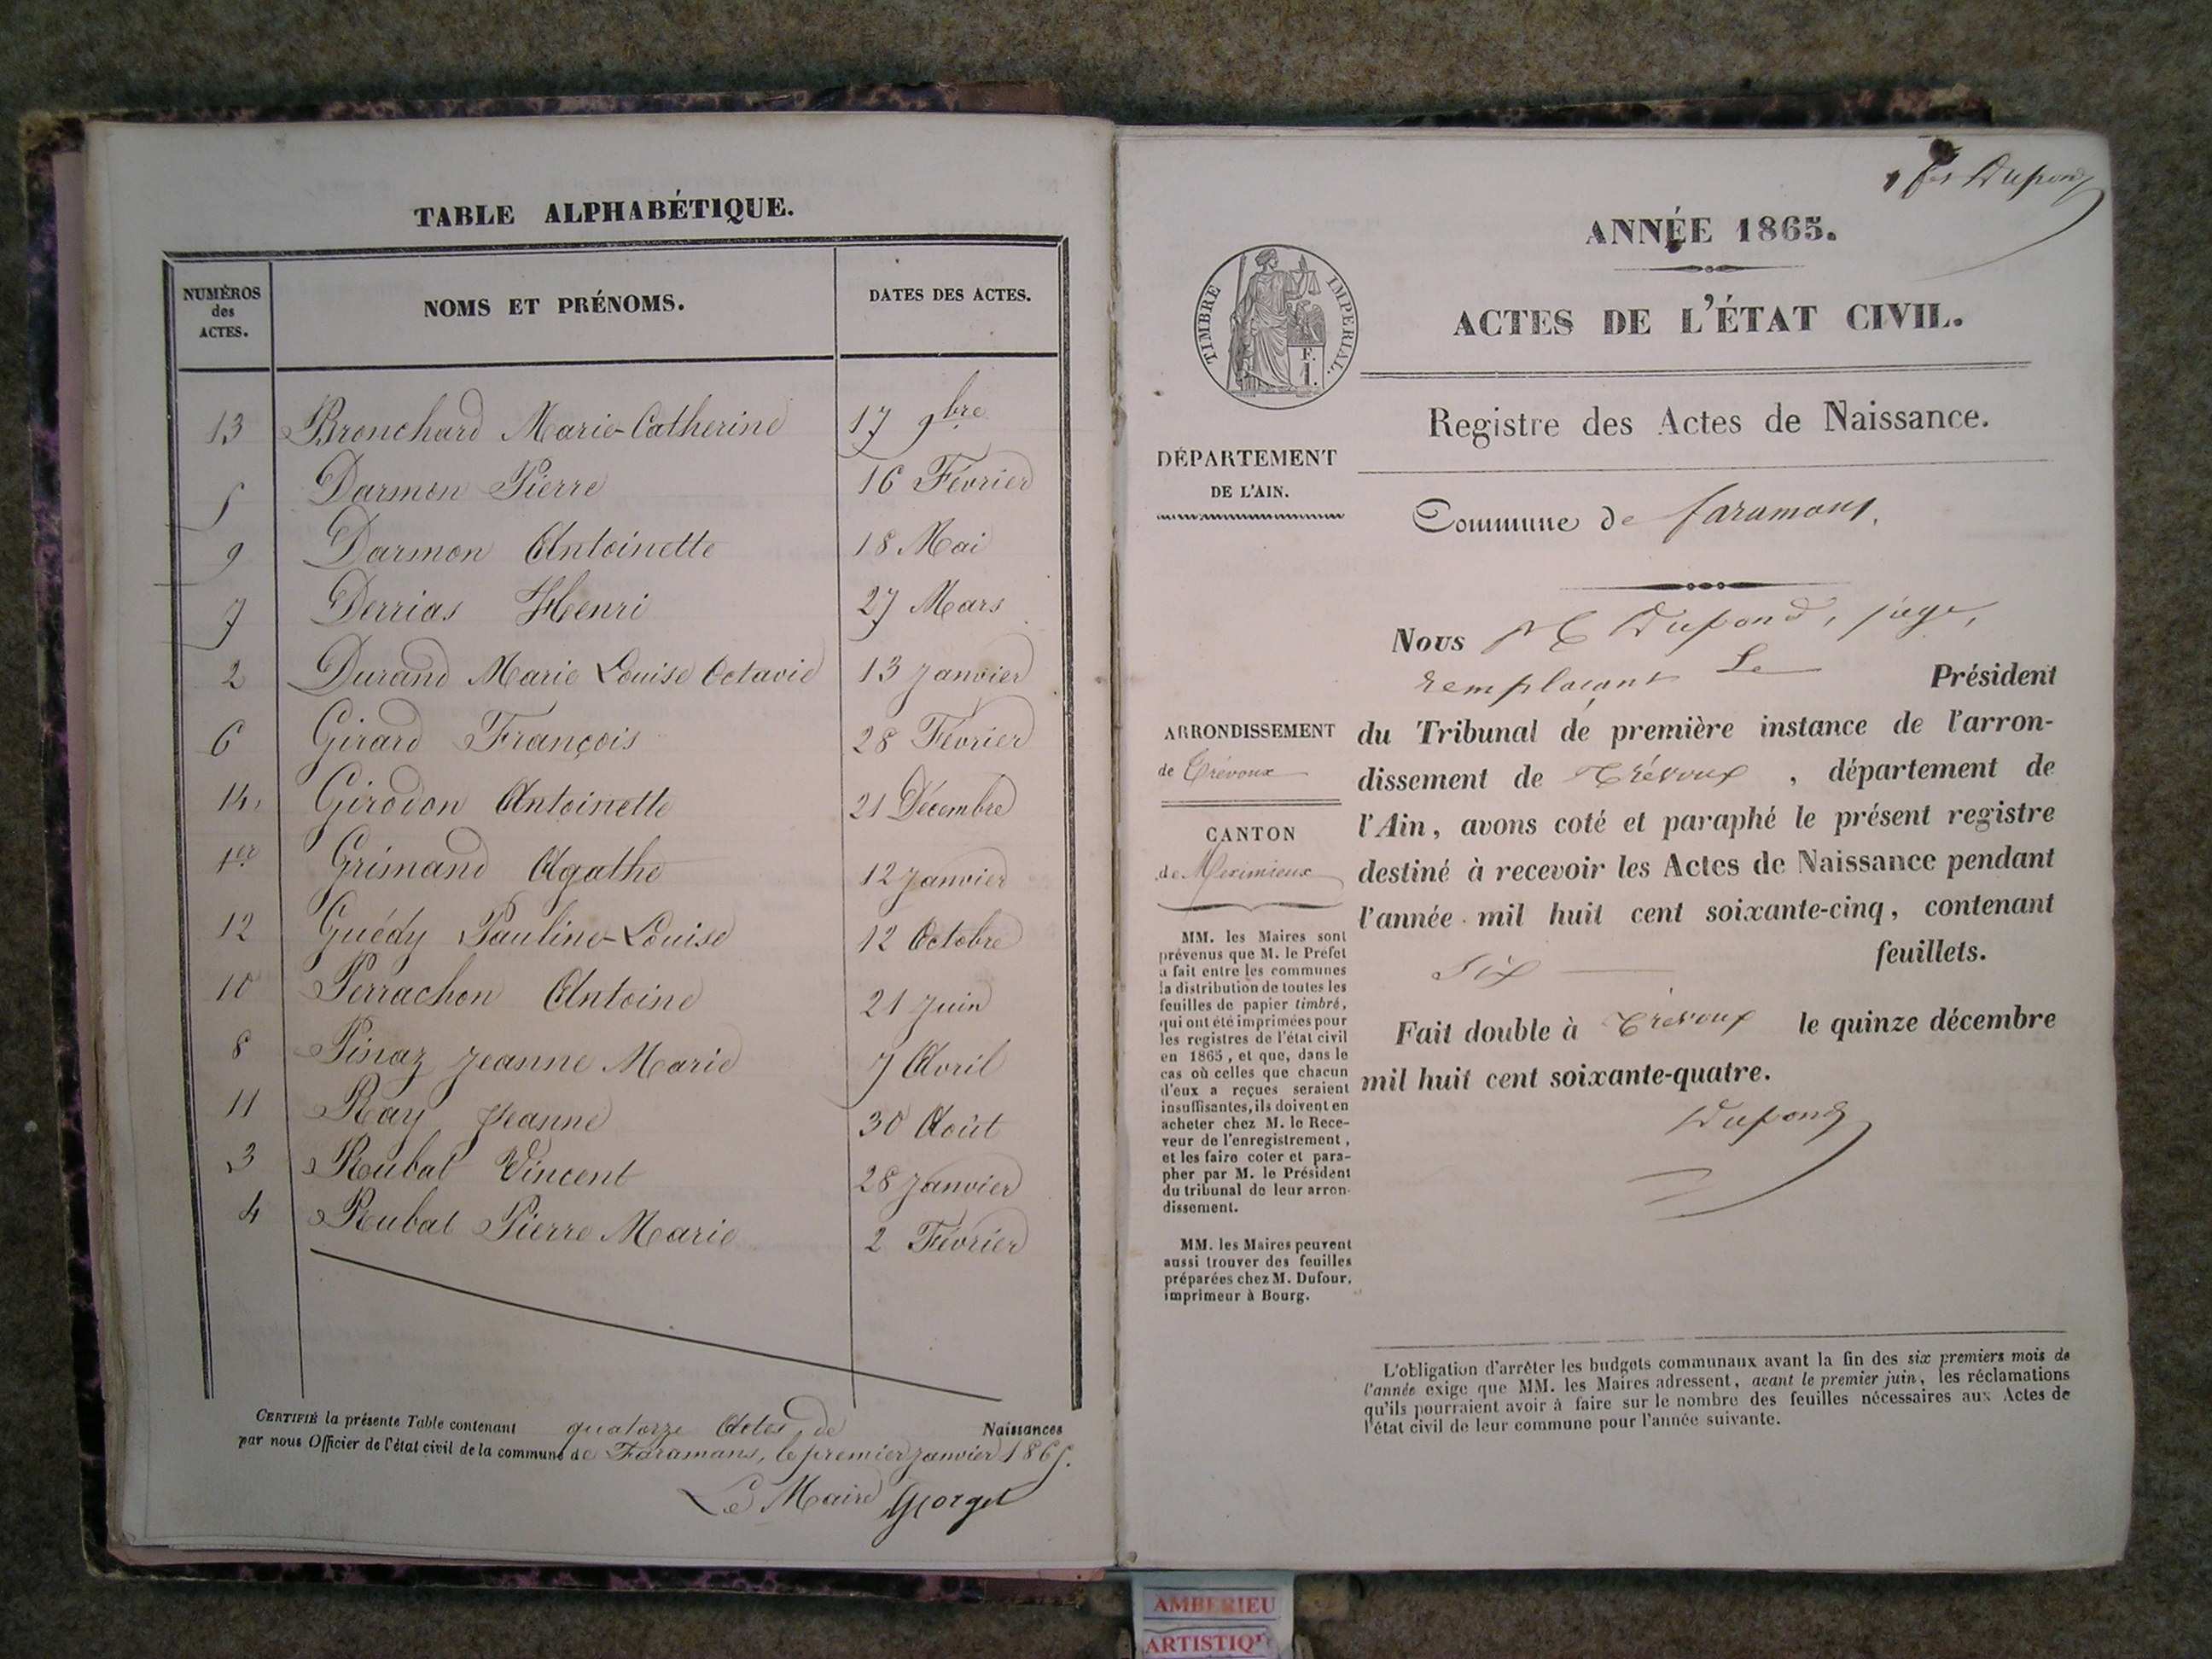 TABLE ALPHABÉTIQUE.
NUMÉROS des ACTES.
NOMS ET PRÉNOMS.
DATES DES ACTES.
13 Bronchard Marie-Catherine 17 9bre
5 Darmon Pierre 16 Février
9 Darmon Antoinette 18 Mai
7 Derrias Henri 27 Mars
2 Durand Marie Louise Octavie 13 Janvier
6 Girard François 28 Février
14 Girodon Antoinette 21 Décembre
1er Grimand Agathe 12 Janvier
12 Guédy Pauline-Louise 12 Octobre
10 Perrachon Antoine 21 Juin
8 Pinaz Jeanne Marie 7 Avril
11 Ray Jeanne 30 Août
3 Rubat Vincent 28 Janvier
4 Rubat Pierre Marie 2 Février
CERTIFIÉ la présente Table contenant quatorze Actes de Naissances
par nous Officier de l'état civil de la commune de Faramans, le premier janvier 1865.
Le Maire Gorget
Dupond
ANNÉE 1865.
TIMBRE IMPERIAL.
F.
1.
ACTES DE L'ÉTAT CIVIL.
Registre des Actes de Naissance.
DÉPARTEMENT
DE L'AIN.
Commune de faramans.
ARRONDISSEMENT
de Trévoux
CANTON
de Meximieux
MM. les Maires sont
prévenus que M. le Préfet
a fait entre les communes
la distribution de toutes les
feuilles de papier timbré,
qui ont été imprimées pour
les registres de l'état civil
en 1865, et que, dans le
cas où celles que chacun
d'eux a reçues seraient
insuffisantes, ils doivent en
acheter chez M. le Rece-
veur de l'enregistrement,
et les faire coter et para-
pher par M. le Président
du tribunal de leur arron-
dissement.
MM. les Maires peuvent
aussi trouver des feuilles
préparées chez M. Dufour,
imprimeur à Bourg.
Nous Dupond, juge,
remplaçant Le Président
du Tribunal de première instance de l'arron-
dissement de Trévoux, département de
l'Ain, avons coté et paraphé le présent registre
destiné à recevoir les Actes de Naissance pendant
l'année mil huit cent soixante-cinq, contenant
six feuillets.
Fait double à Trévoux le quinze décembre
mil huit cent soixante-quatre.
Dupond
L'obligation d'arrêter les budgets communaux avant la fin des six premiers mois de
l'année exige que MM. les Maires adressent, avant le premier juin, les réclamations
qu'ils pourraient avoir à faire sur le nombre des feuilles nécessaires aux Actes de
l'état civil de leur commune pour l'année suivante.
AMBERIEU
ARTISTIQ